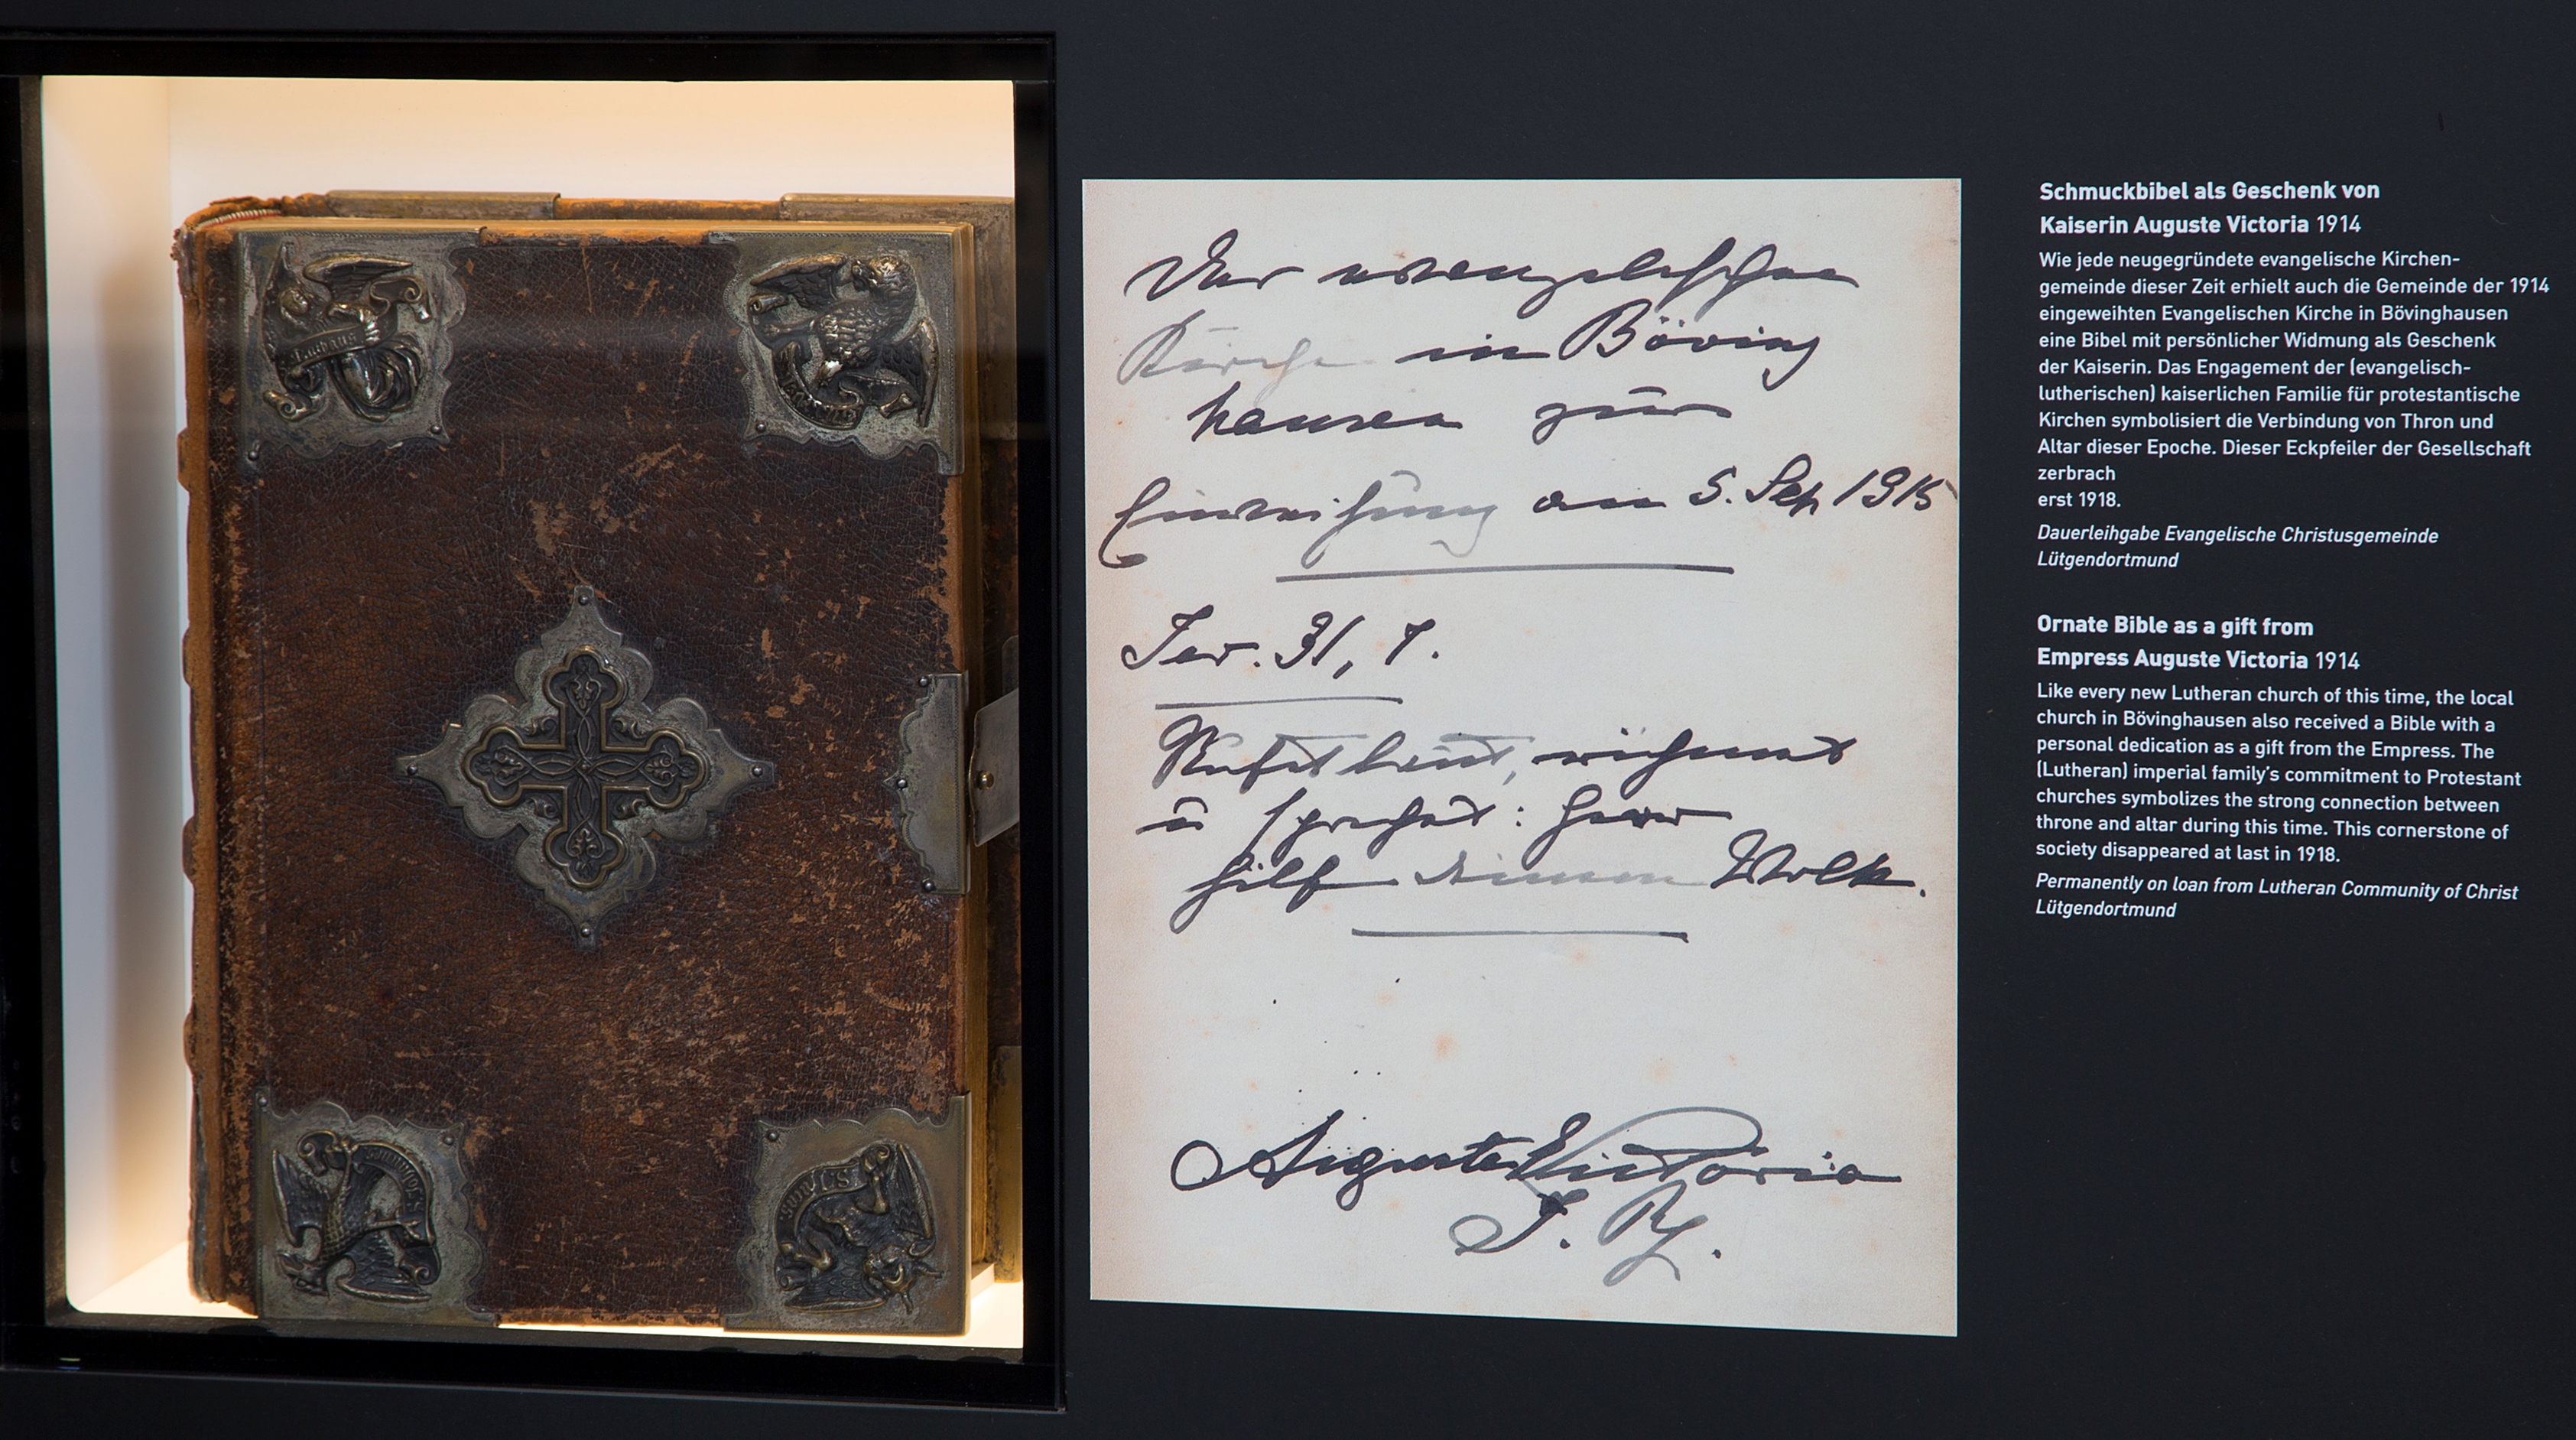 Lucas
Marcus
Johannes
Der evangelischen
Kirche in Böving
hausen zur
Einweihung am 5. Sep 1915
Jer. 31, 7.
Rufet laut, rühmet
u sprechet: Herr
hilf deinem Volk.
Auguste Victoria
I. R.
Schmuckbibel als Geschenk von
Kaiserin Auguste Victoria 1914
Wie jede neugegründete evangelische Kirchen-
gemeinde dieser Zeit erhielt auch die Gemeinde der 1914
eingeweihten Evangelischen Kirche in Bövinghausen
eine Bibel mit persönlicher Widmung als Geschenk
der Kaiserin. Das Engagement der (evangelisch-
lutherischen) kaiserlichen Familie für protestantische
Kirchen symbolisiert die Verbindung von Thron und
Altar dieser Epoche. Dieser Eckpfeiler der Gesellschaft
zerbrach
erst 1918.
Dauerleihgabe Evangelische Christusgemeinde
Lütgendortmund
Ornate Bible as a gift from
Empress Auguste Victoria 1914
Like every new Lutheran church of this time, the local
church in Bövinghausen also received a Bible with a
personal dedication as a gift from the Empress. The
(Lutheran) imperial family's commitment to Protestant
churches symbolizes the strong connection between
throne and altar during this time. This cornerstone of
society disappeared at last in 1918.
Permanently on loan from Lutheran Community of Christ
Lütgendortmund